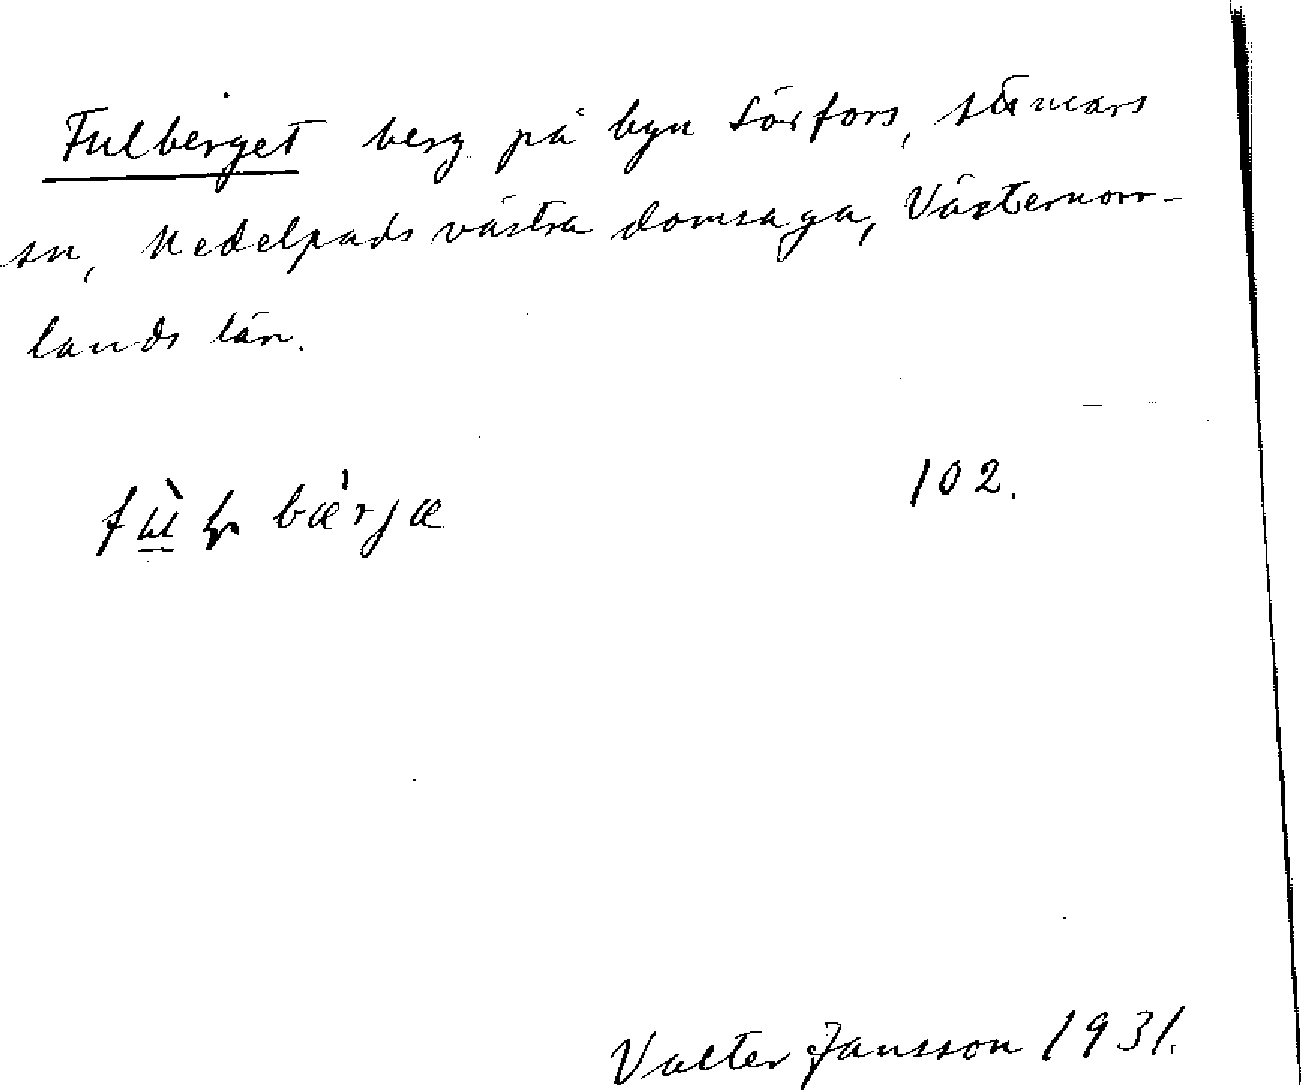 Fulberget berg på byn Sörfors, Attmars
sn, Medelpads västra domsaga, Västernorr-
lands län.
bærjæ 102.
Valter Jansson 1931.